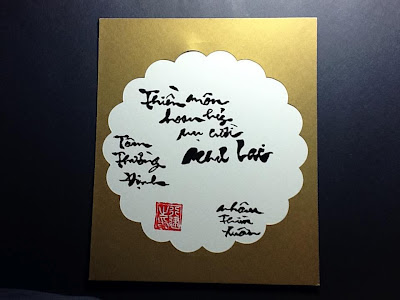 Thiền môn
hoan hỷ
nụ cười
Như Lai
Tâm
Thường
Định
nhâm
thìn
xuân